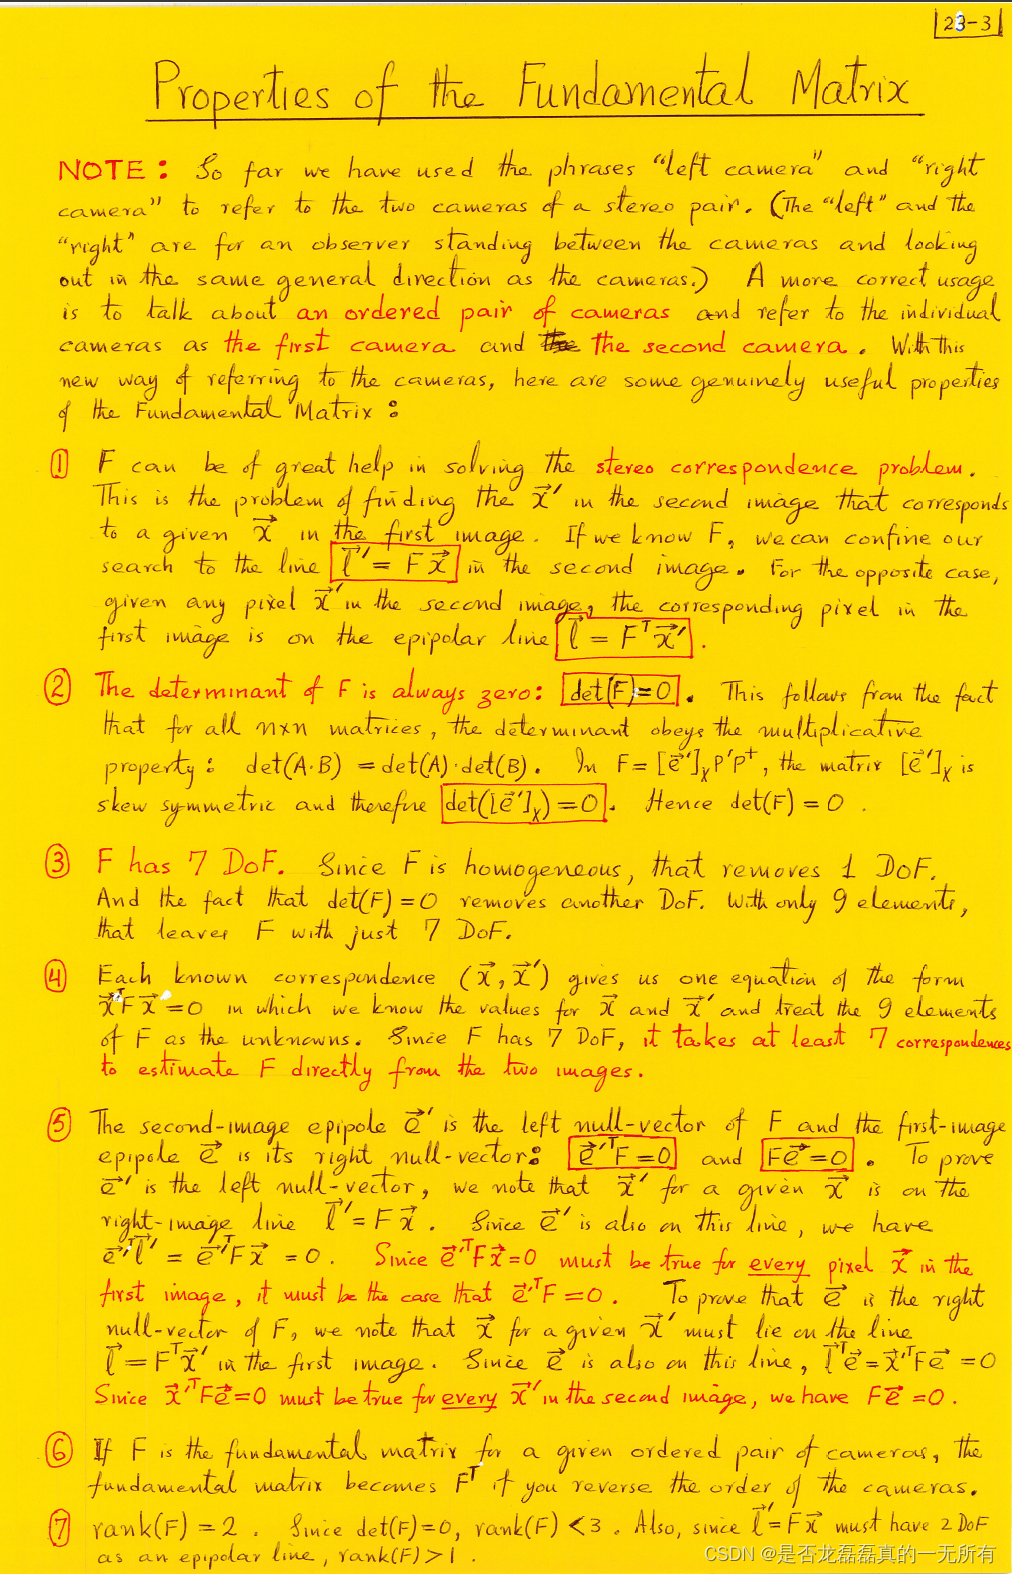 23-3
Properties of the Fundamental Matrix
NOTE: So far we have used the phrases "left camera" and "right
camera" to refer to the two cameras of a stereo pair. (The "left" and the
"right" are for an observer standing between the cameras and looking
out in the same general direction as the cameras.) A more correct usage
is to talk about an ordered pair of cameras and refer to the individual
cameras as the first camera and the second camera. With this
new way of referring to the cameras, here are some genuinely useful properties
of the Fundamental Matrix:
① F can be of great help in solving the stereo correspondence problem.
This is the problem of finding the x⃗' in the second image that corresponds
to a given x⃗ in the first image. If we know F, we can confine our
search to the line l⃗' = F x⃗ in the second image. For the opposite case,
given any pixel x⃗' in the second image, the corresponding pixel in the
first image is on the epipolar line l⃗ = Fᵀx⃗'.
② The determinant of F is always zero: det(F)=0. This follows from the fact
that for all n×n matrices, the determinant obeys the multiplicative
property: det(A·B) = det(A)·det(B). In F = [e⃗']ₓP'P⁺, the matrix [e⃗']ₓ is
skew symmetric and therefore det([e⃗']ₓ) = 0. Hence det(F) = 0.
③ F has 7 DoF. Since F is homogeneous, that removes 1 DoF.
And the fact that det(F)=0 removes another DoF. With only 9 elements,
that leaves F with just 7 DoF.
④ Each known correspondence (x⃗, x⃗') gives us one equation of the form
x⃗ᵀF x⃗ = 0 in which we know the values for x⃗ and x⃗' and treat the 9 elements
of F as the unknowns. Since F has 7 DoF, it takes at least 7 correspondences
to estimate F directly from the two images.
⑤ The second-image epipole e⃗' is the left null-vector of F and the first-image
epipole e⃗ is its right null-vector: e⃗'ᵀF=0 and Fe⃗=0. To prove
e⃗' is the left null-vector, we note that x⃗' for a given x⃗ is on the
right-image line l⃗' = F x⃗. Since e⃗' is also on this line, we have
e⃗'ᵀl⃗' = e⃗'ᵀF x⃗ = 0. Since e⃗'ᵀFx⃗=0 must be true for every pixel x⃗ in the
first image, it must be the case that e⃗'ᵀF = 0. To prove that e⃗ is the right
null-vector of F, we note that x⃗ for a given x⃗' must lie on the line
l⃗ = Fᵀx⃗' in the first image. Since e⃗ is also on this line, l⃗ᵀe⃗ = x⃗'ᵀFe⃗ = 0
Since x⃗'ᵀFe⃗=0 must be true for every x⃗' in the second image, we have Fe⃗ = 0.
⑥ If F is the fundamental matrix for a given ordered pair of cameras, the
fundamental matrix becomes Fᵀ if you reverse the order of the cameras.
⑦ rank(F) = 2. Since det(F)=0, rank(F) < 3. Also, since l⃗' = F x⃗ must have 2 DoF
as an epipolar line, rank(F) > 1.
CSDN @是否龙磊磊真的一无所有